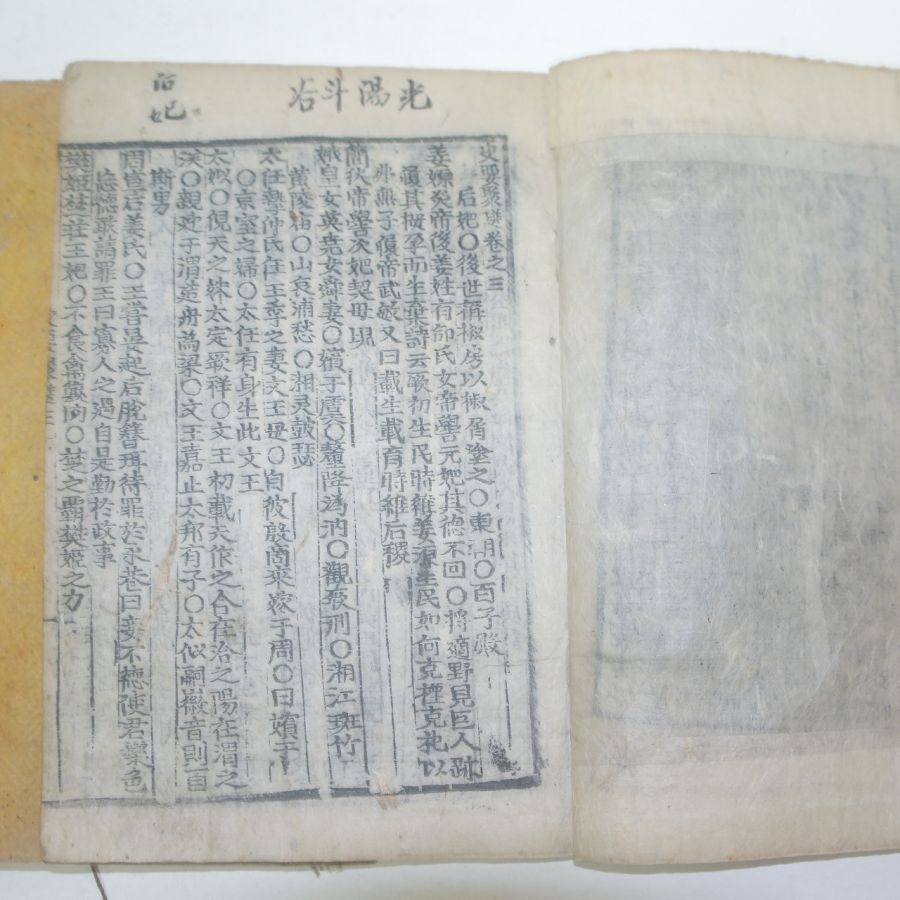 光陽斗治
后妃
史要聚選卷之三
后妃〇後世稱椒房以椒屑塗之〇東朝〇百子殿
姜嫄炎帝後姜姓有邰氏女帝嚳元妃其德不回〇將適野見巨人跡
履其拇孕而生棄詩云厥初生民時維姜嫄生民如何克禋克祀以
弗無子履帝武敏又曰載生載育時維后稷
簡狄帝嚳次妃契母
娥皇女英堯女舜妻〇嬪于虞〇釐降溈汭〇觀厥刑〇湘江斑竹
黃陵廟〇山哀浦愁〇湘灵鼓瑟
太任摯仲氏任王季之妻文王母〇自彼殷商來嫁于周〇曰嬪于
〇京室之婦〇太任有身生此文王
太姒〇俔天之妹太定厥祥〇文王初載天作之合在洽之陽在渭之
涘〇親迎于渭造舟爲梁〇文王嘉止太邦有子〇太姒嗣徽音則百
斯男
周宣后姜氏〇王嘗晏起后脫簪珥待罪於永巷曰妾不德使君樂色
忘德敢請罪王曰寡人之過自是勤於政事
樊姬楚莊王妃〇不食禽獸肉〇楚之霸樊姬之力